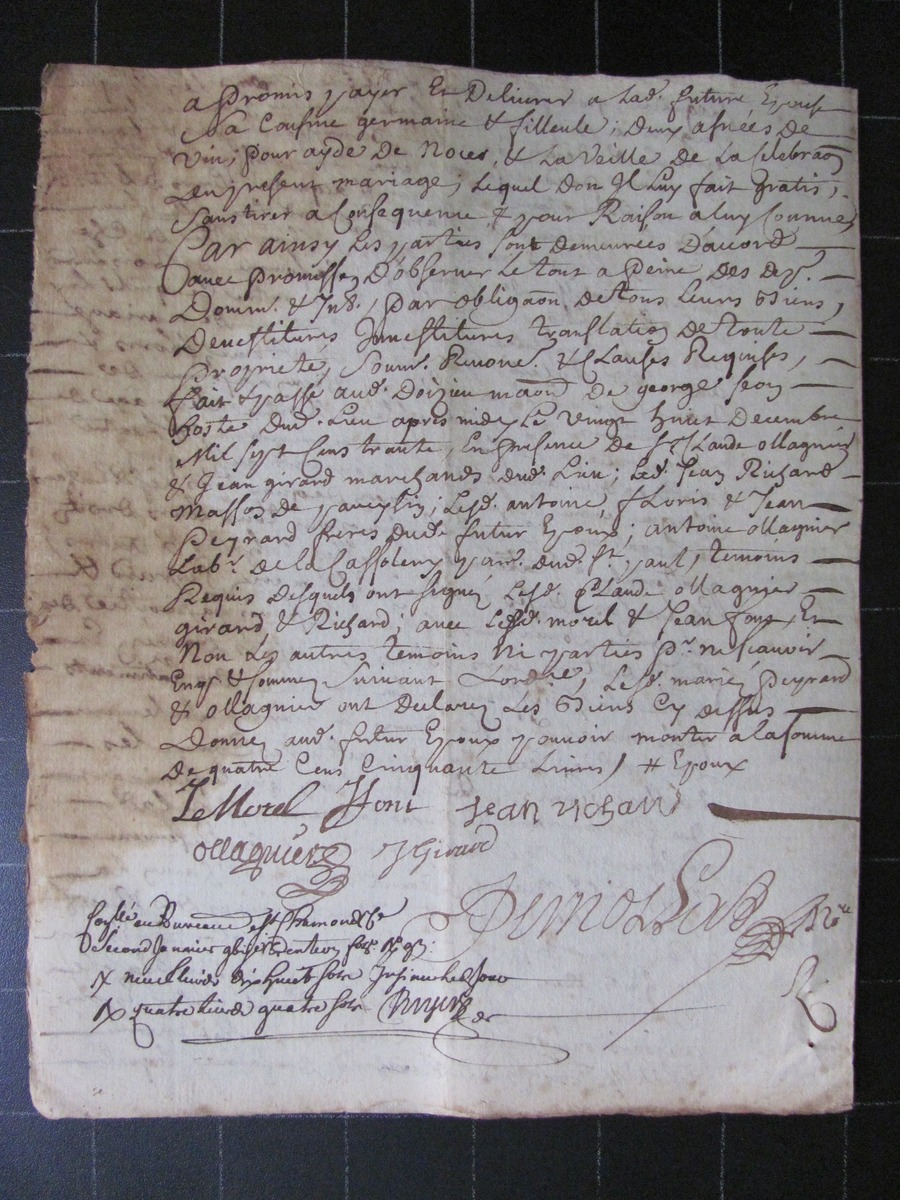 a promis payer Et Delivrer a lad. future Epouse
Sa Cousine germaine & filleule; deux asnées de
vin, pour ayde de Noces, & La veille de La Celebraon
du present mariage; lequel don Il Luy fait gratis,
Sans tirer a Consequence & pour Raison a luy Connues
Par ainsy Les parties sont demeurées D'accord
avec promesses D'observer Le tout a peine des dep.
Domm. & Int. par obligaon de tous Leurs Biens,
Devestitures Investitures translation de toute
Propriete, Soum. Renonc. & Clauses Requises,
fait & passé aud. Doizieu maon De george
hoste Dud. Lieu apres midy Le vingt huit Decembre
Mil sept Cens trante, En presence de Sr Claude ollagnier
& Jean girard marchands dud. Lieu; Led. Jean Richard
Masson de; Lesd. antoine, floris & Jean
Peyrard freres dud. futur Epoux; antoine ollagnier
Lab. de la par. dud. St. paul, temoins
Requis desquels ont signé Lesd. Claude ollagnier
girard, & Richard; avec Lesd. morel & Jean font, Et
Non Les autres temoins ni parties pr. ne scavoir
Enqs & sommés suivant Lord.ce, Lesd. mariés Peyrard
& ollagnier ont Declaré Les Biens Cy dessus
Donnés aud. futur Epoux pouvoir monter a la somme
de quatre Cens Cinquante Livres / # Epoux
LeMorel JFont Jean richard
ollagniere JGirard
No.re
au Bureau de St. Chamond le
Second Janvier
R neuf livres dix huit sols
R quatre livres quatre sols